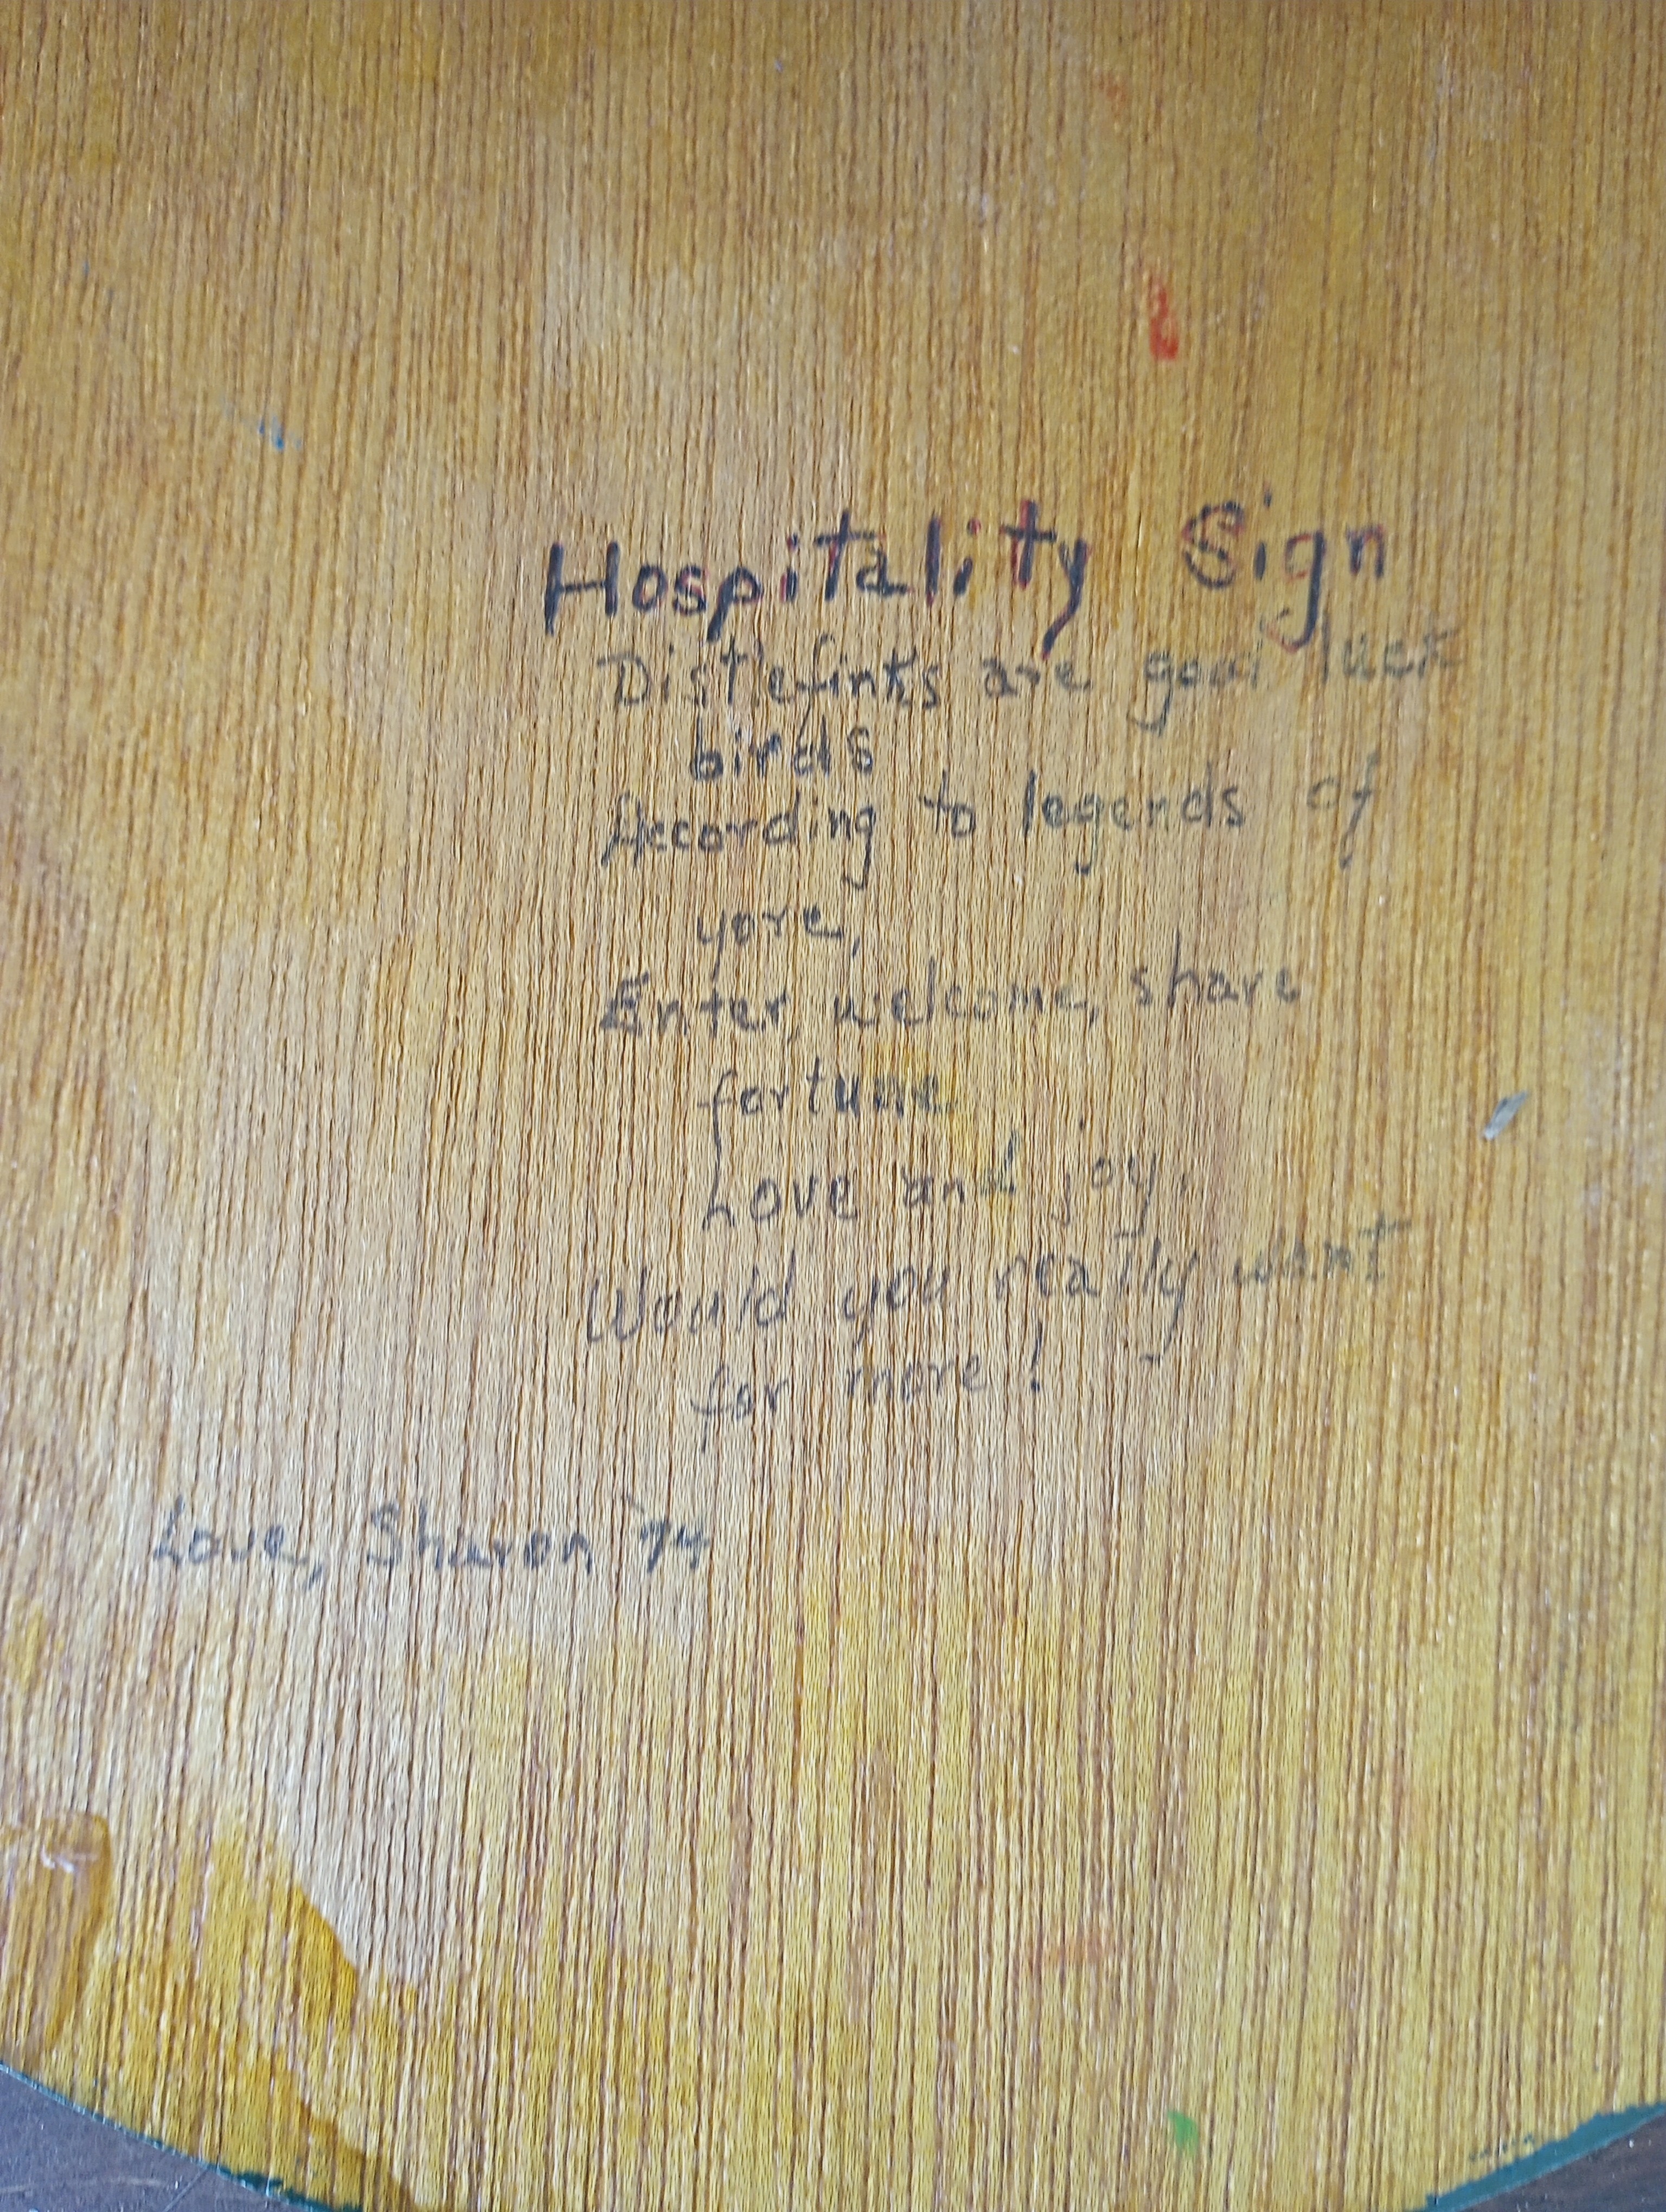 Hospitality Sign
Distlefinks are good luck
birds
According to legends of
yore,
Enter, welcome, share
fortune
Love and joy.
Would you really want
for more!
Love, Sharon '74